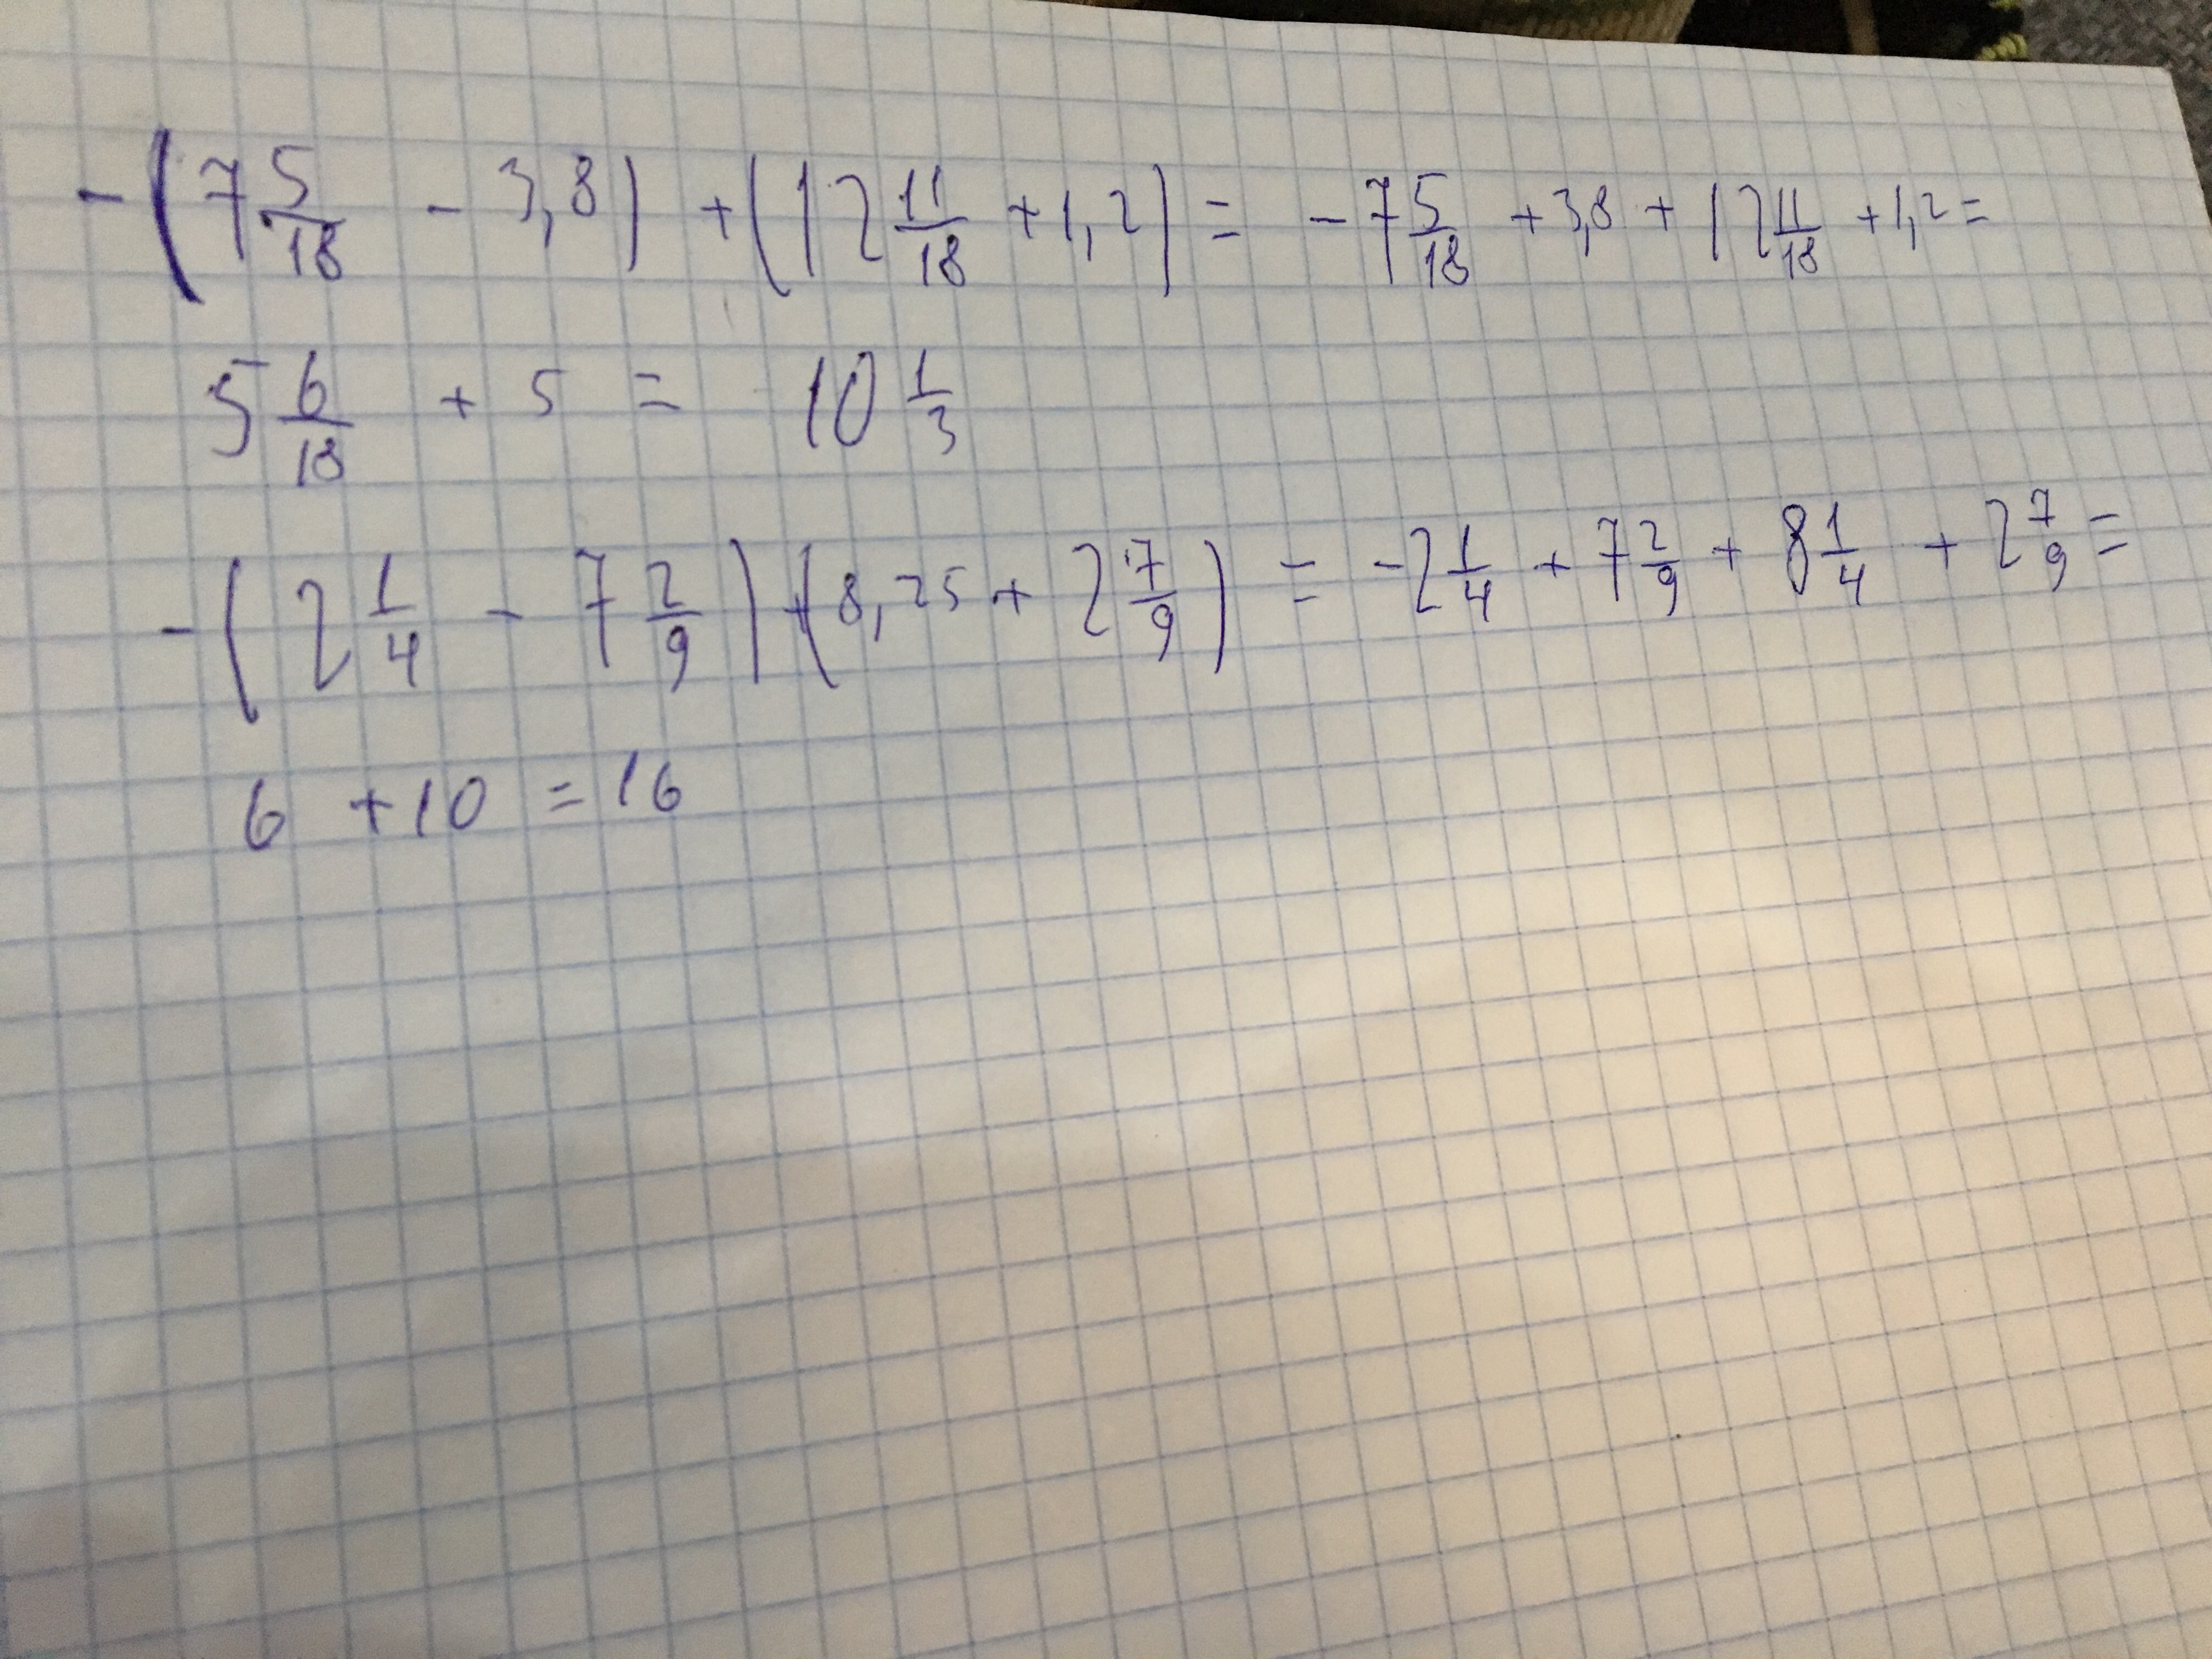 -(7 5/18 - 3,8) + (12 11/18 + 1,2) = -7 5/18 + 3,8 + 12 11/18 + 1,2 =
5 6/18 + 5 = 10 1/3
-(2 1/4 - 7 2/9) + (8,25 + 2 7/9) = -2 1/4 + 7 2/9 + 8 1/4 + 2 7/9 =
6 + 10 = 16